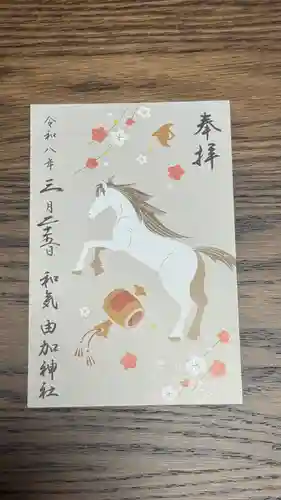 奉拝
令和八年
三月二十五日
和気由加神社